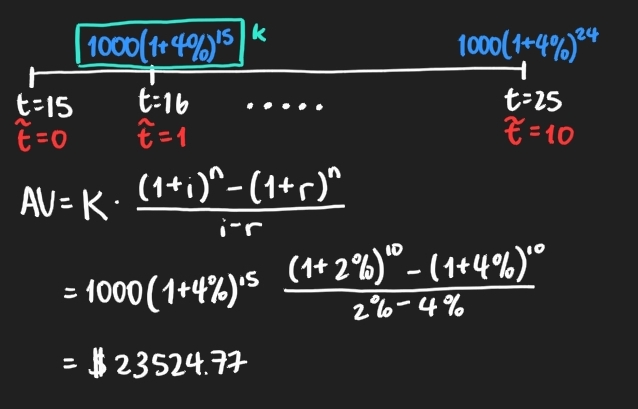 1000(1+4%)¹⁵ K 1000(1+4%)²⁴
t=15 t=16 ..... t=25
t̃=0 t̃=1 t̃=10
AV = K · ((1+i)ⁿ − (1+r)ⁿ)/(i−r)
= 1000(1+4%)¹⁵ ((1+2%)¹⁰ − (1+4%)¹⁰)/(2%−4%)
= $23524.77